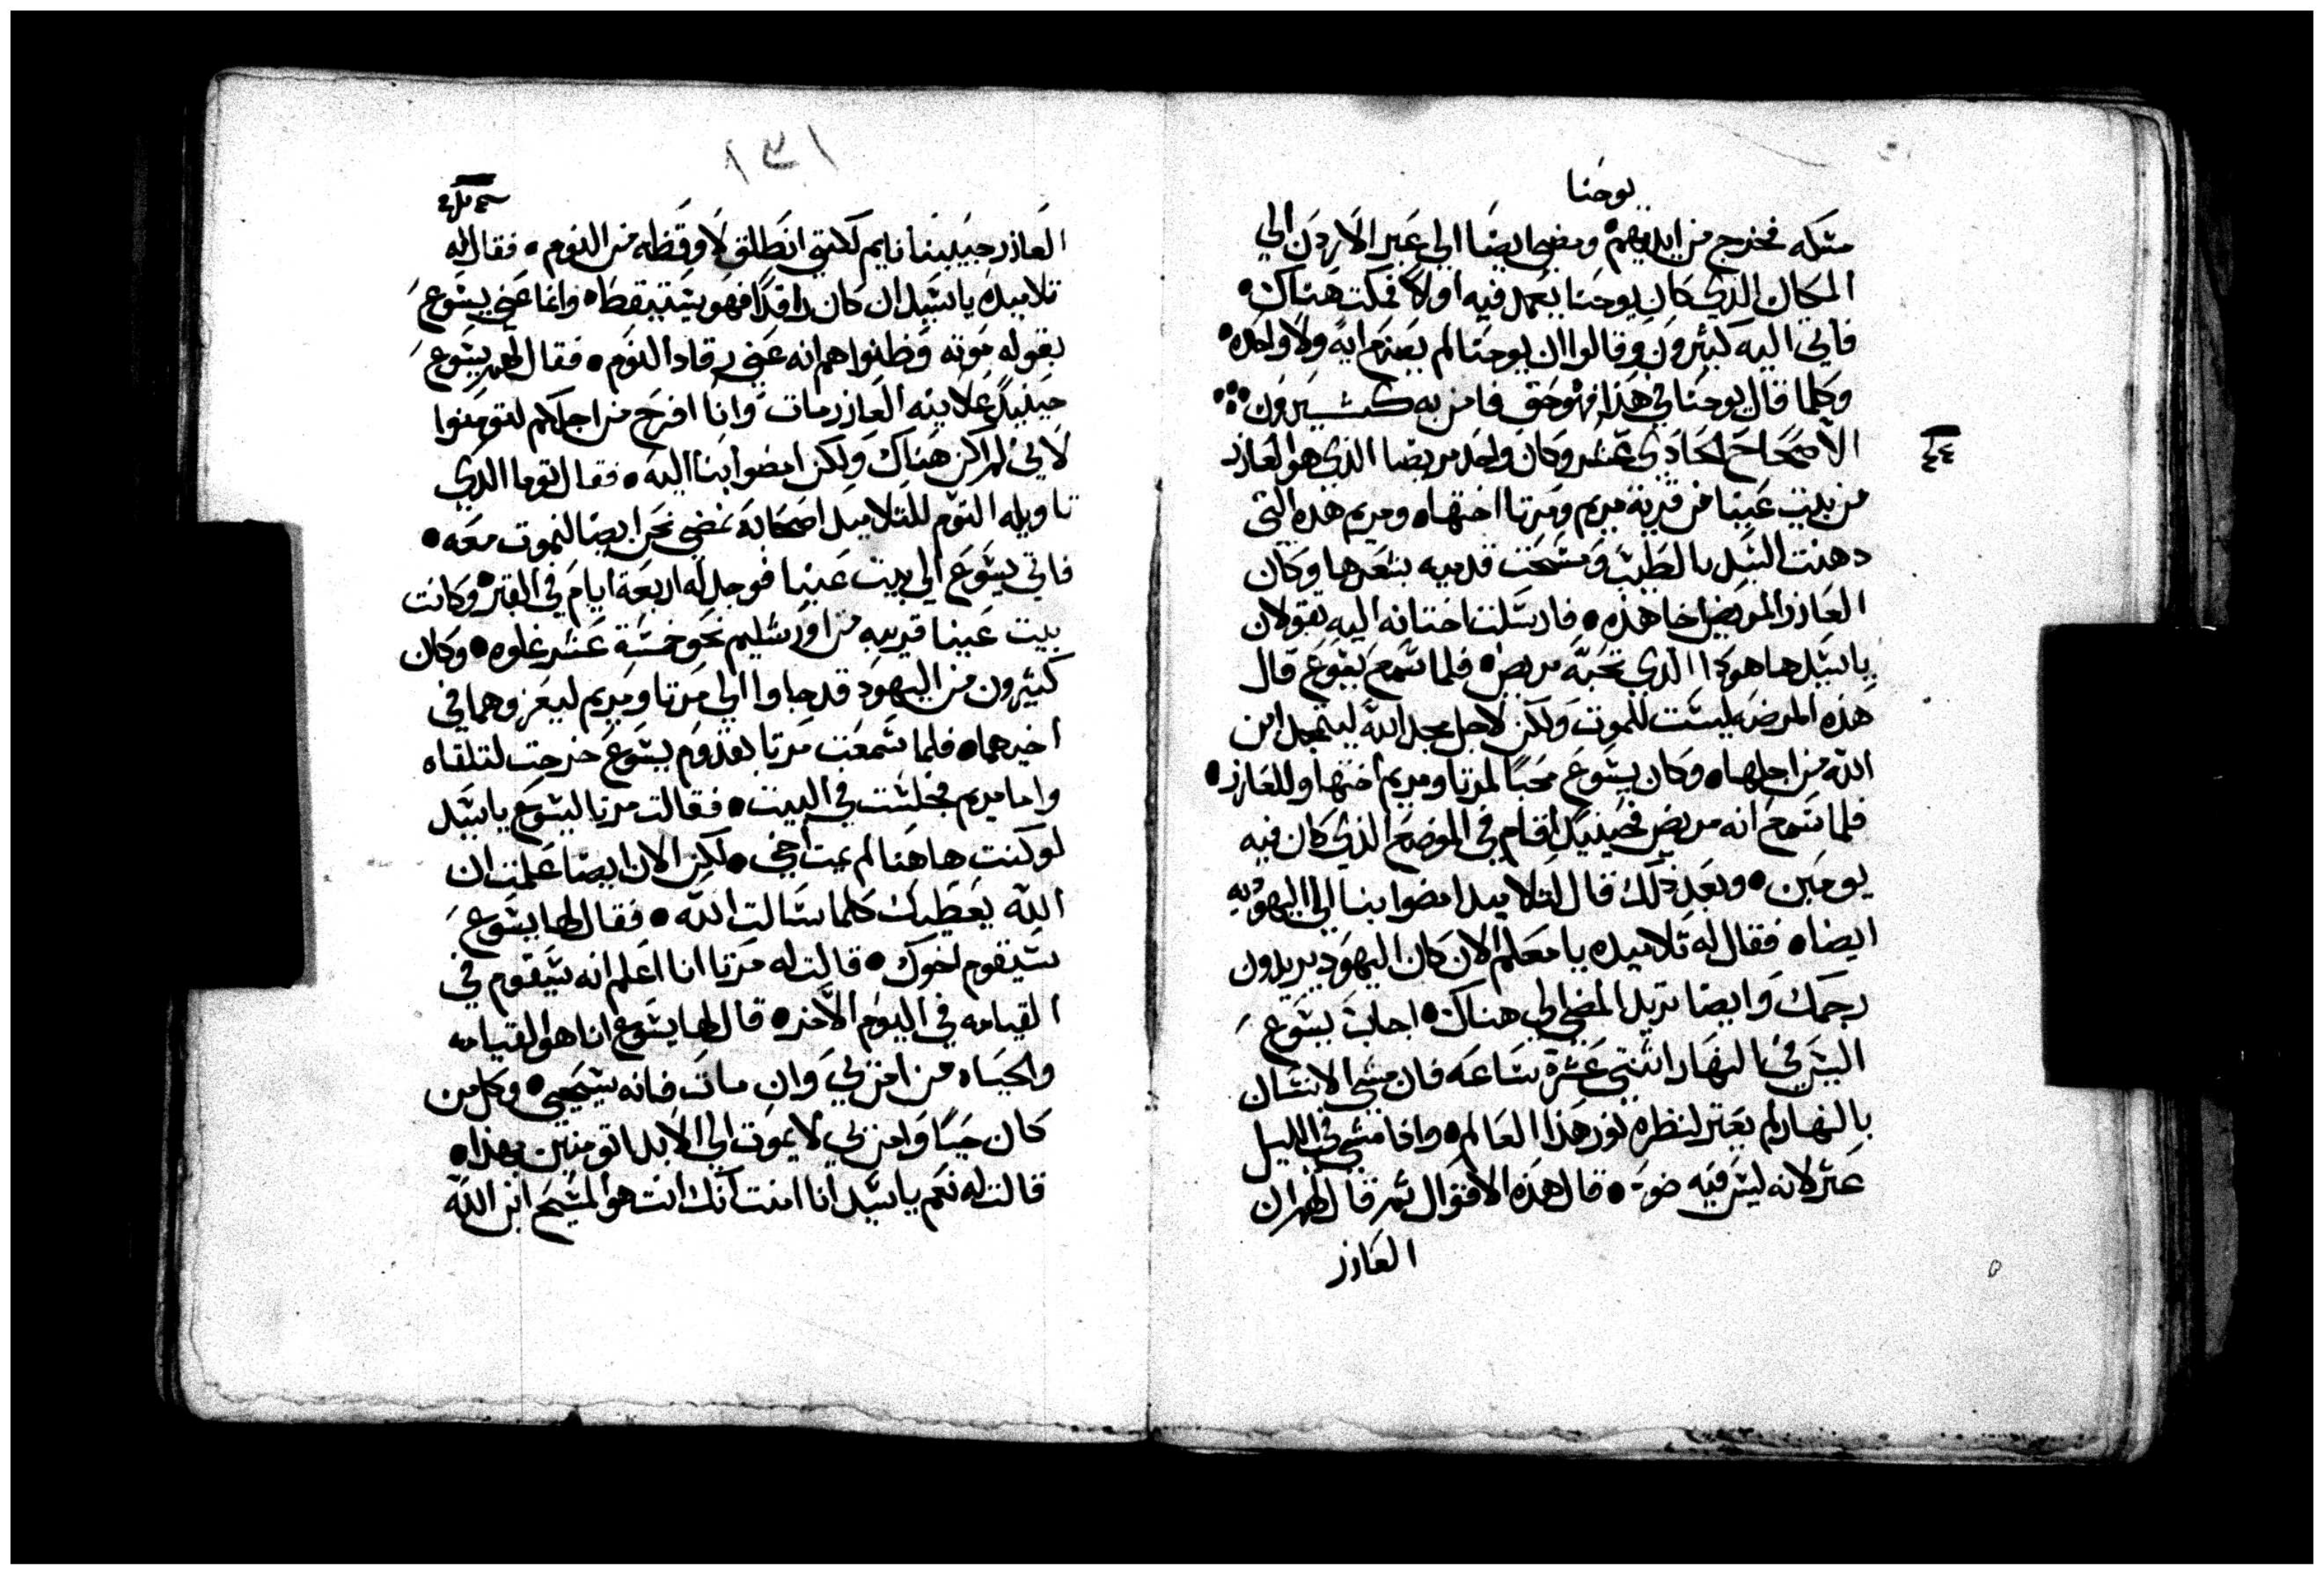 يوحنا
مسكه فخرج من ايديهم ومضي ايضا الي عبر الاردن الي
المكان الذي كان يوحنا يعمد فيه اولا فمكث هناك
فاتي اليه كثيرون وقالوا ان يوحنا لم يصنع ايه ولا واحده
وكلما قال يوحنا في هذا فهو حق فامن به كثيرون
الاصحاح الحادي عشر وكان واحد مريضا الذي هو العازر
من بيت عنيا من قرية مريم ومرتا اختها ومريم هذه التي
دهنت السيد بالطيب ومسحت قدميه بشعرها وكان
العازر المريض اخا هذه فارسلتا اختاه اليه تقولان
يا سيد ها هوذا الذي تحبه مريض فلما سمع يسوع قال
هذه المرضه ليست للموت ولكن لاجل مجد الله ليتمجد ابن
الله من اجلها وكان يسوع محبا لمرتا ومريم اختها وللعازر
فلما سمع انه مريض فحينيذ اقام في الموضع الذي كان فيه
يومين وبعد ذلك قال لتلاميذه امضوا بنا الي اليهوديه
ايضا فقال له تلاميذه يا معلم الان كان اليهود يريدون
رجمك وايضا تريد المضي الي هناك اجاب يسوع
اليس في النهار اثنتي عشرة ساعه فان مشي الانسان
بالنهار لم يعثر لنظره نور هذا العالم واذا مشي في الليل
عثر لانه ليس فيه ضو قال هذه الاقوال ثم قال لهم ان
العازر
١٣١
العازر حبيبنا نايم لكنني انطلق لاوقظه من النوم فقال له
تلاميذه يا سيد ان كان راقدا فهو يستيقظ وانما عني يسوع
بقوله موته وظنوا هم انه عني رقاد النوم فقال لهم يسوع
حينيذ علانيه العازر مات وانا افرح من اجلكم لتومنوا
لاني لم اكن هناك ولكن امضوا بنا اليه فقال توما الذي
تاويله التوم للتلاميذ اصحابه نمضي نحن ايضا لنموت معه
فاتي يسوع الي بيت عنيا فوجد له اربعة ايام في القبر وكانت
بيت عنيا قريبه من اورشليم نحو خمسة عشر غلوه وكان
كثيرون من اليهود قد جاوا الي مرتا ومريم ليعزوهما في
اخيهما فلما سمعت مرتا بقدوم يسوع خرجت لتلقاه
واما مريم فجلست في البيت فقالت مرتا ليسوع يا سيد
لو كنت هاهنا لم يمت اخي لكن الان ايضا علمت ان
الله يعطيك كلما سالت الله فقال لها يسوع
سيقوم اخوك قالت له مرتا انا اعلم انه سيقوم في
القيامه في اليوم الاخر قال لها يسوع انا هو القيامه
والحياه من امن بي وان مات فانه سيحيي وكل من
كان حيا وامن بي لا يموت الي الابد اتومنين بهذا
قالت له نعم يا سيد انا امنت انك انت هو المسيح ابن الله